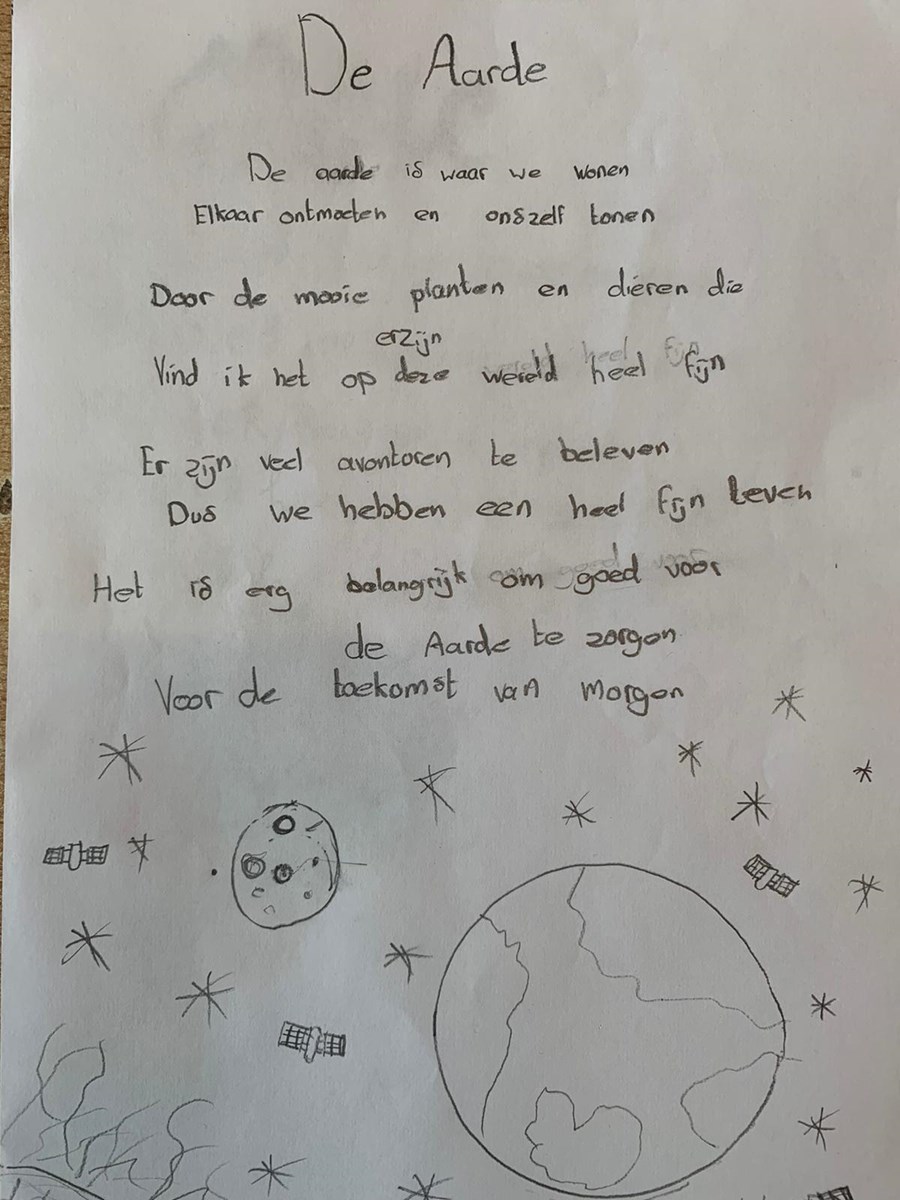 De Aarde
De aarde is waar we wonen
Elkaar ontmoeten en onszelf tonen
Door de mooie planten en dieren die
erzijn
Vind ik het op deze wereld heel fijn
Er zijn veel avontoren te beleven
Dus we hebben een heel fijn leven
Het is erg belangrijk om goed voor
de Aarde te zorgen
Voor de toekomst van morgen